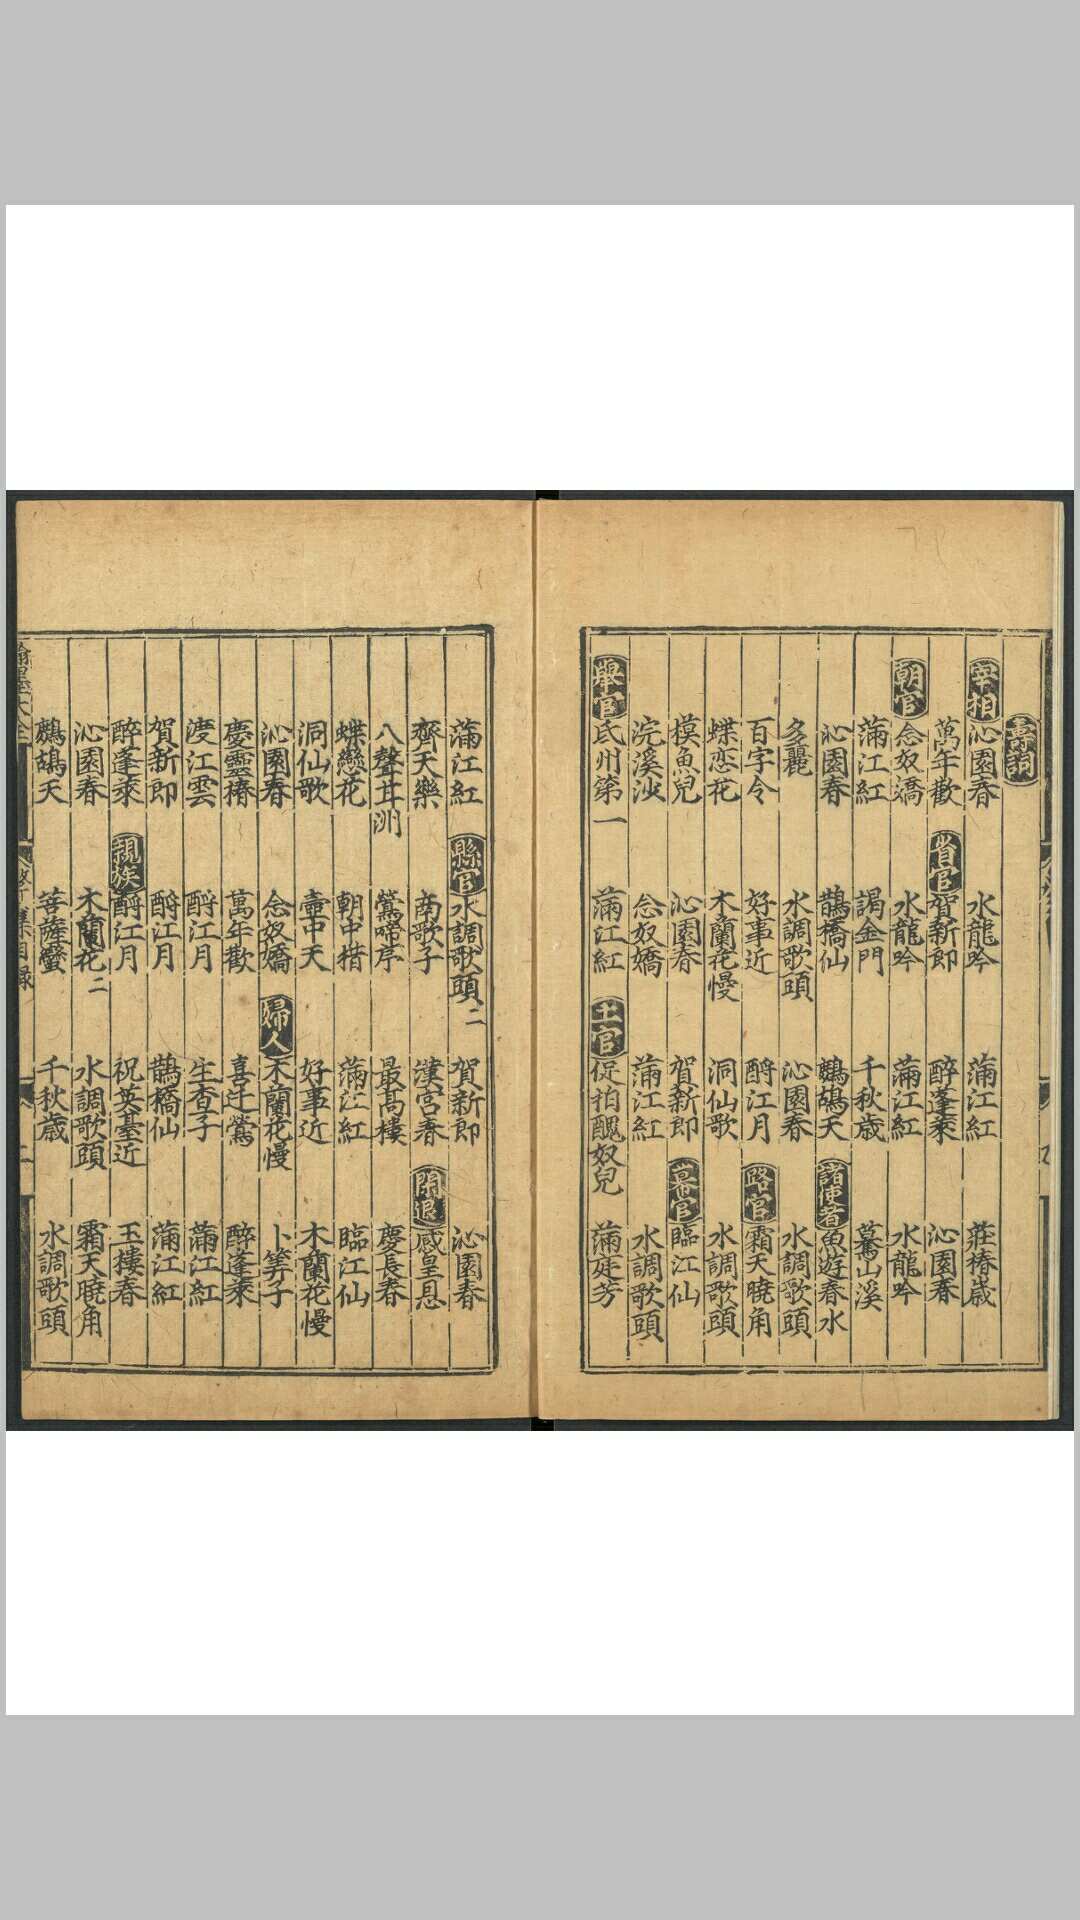 壽詞
宰相 沁園春 水龍吟 滿江紅 莊椿歲
萬年歡 省官 賀新郎 醉蓬萊 沁園春
朝官 念奴嬌 水龍吟 滿江紅 水龍吟
滿江紅 謁金門 千秋歲 驀山溪
沁園春 鵲橋仙 鷓鴣天 諸使者 魚遊春水
多麗 水調歌頭 沁園春 水調歌頭
百字令 好事近 酹江月 路官 霜天曉角
蝶恋花 木蘭花慢 洞仙歌 水調歌頭
模魚兒 沁園春 賀新郎 幕官 臨江仙
浣溪沙 念奴嬌 滿江紅 水調歌頭
學官 氐州第一 滿江紅 土官 促拍醜奴兒 滿庭芳
滿江紅 縣官 水調歌頭二 賀新郎 沁園春
齊天樂 南歌子 漢宮春 閑退 感皇恩
八聲甘洲 鶯啼序 最高樓 慶長春
蝶戀花 朝中措 滿江紅 臨江仙
洞仙歌 壷中天 好事近 木蘭花慢
沁園春 念奴嬌 婦人 木蘭花慢 卜筭子
慶靈椿 萬年歡 喜迁鶯 醉蓬萊
渡江雲 酹江月 生查子 滿江紅
賀新郎 酹江月 鵲橋仙 滿江紅
醉蓬萊 親族 酹江月 祝英臺近 玉樓春
沁園春 木蘭花二 水調歌頭 霜天曉角
鷓鴣天 菩薩蠻 千秋歲 水調歌頭
翰墨大全
集目錄
二